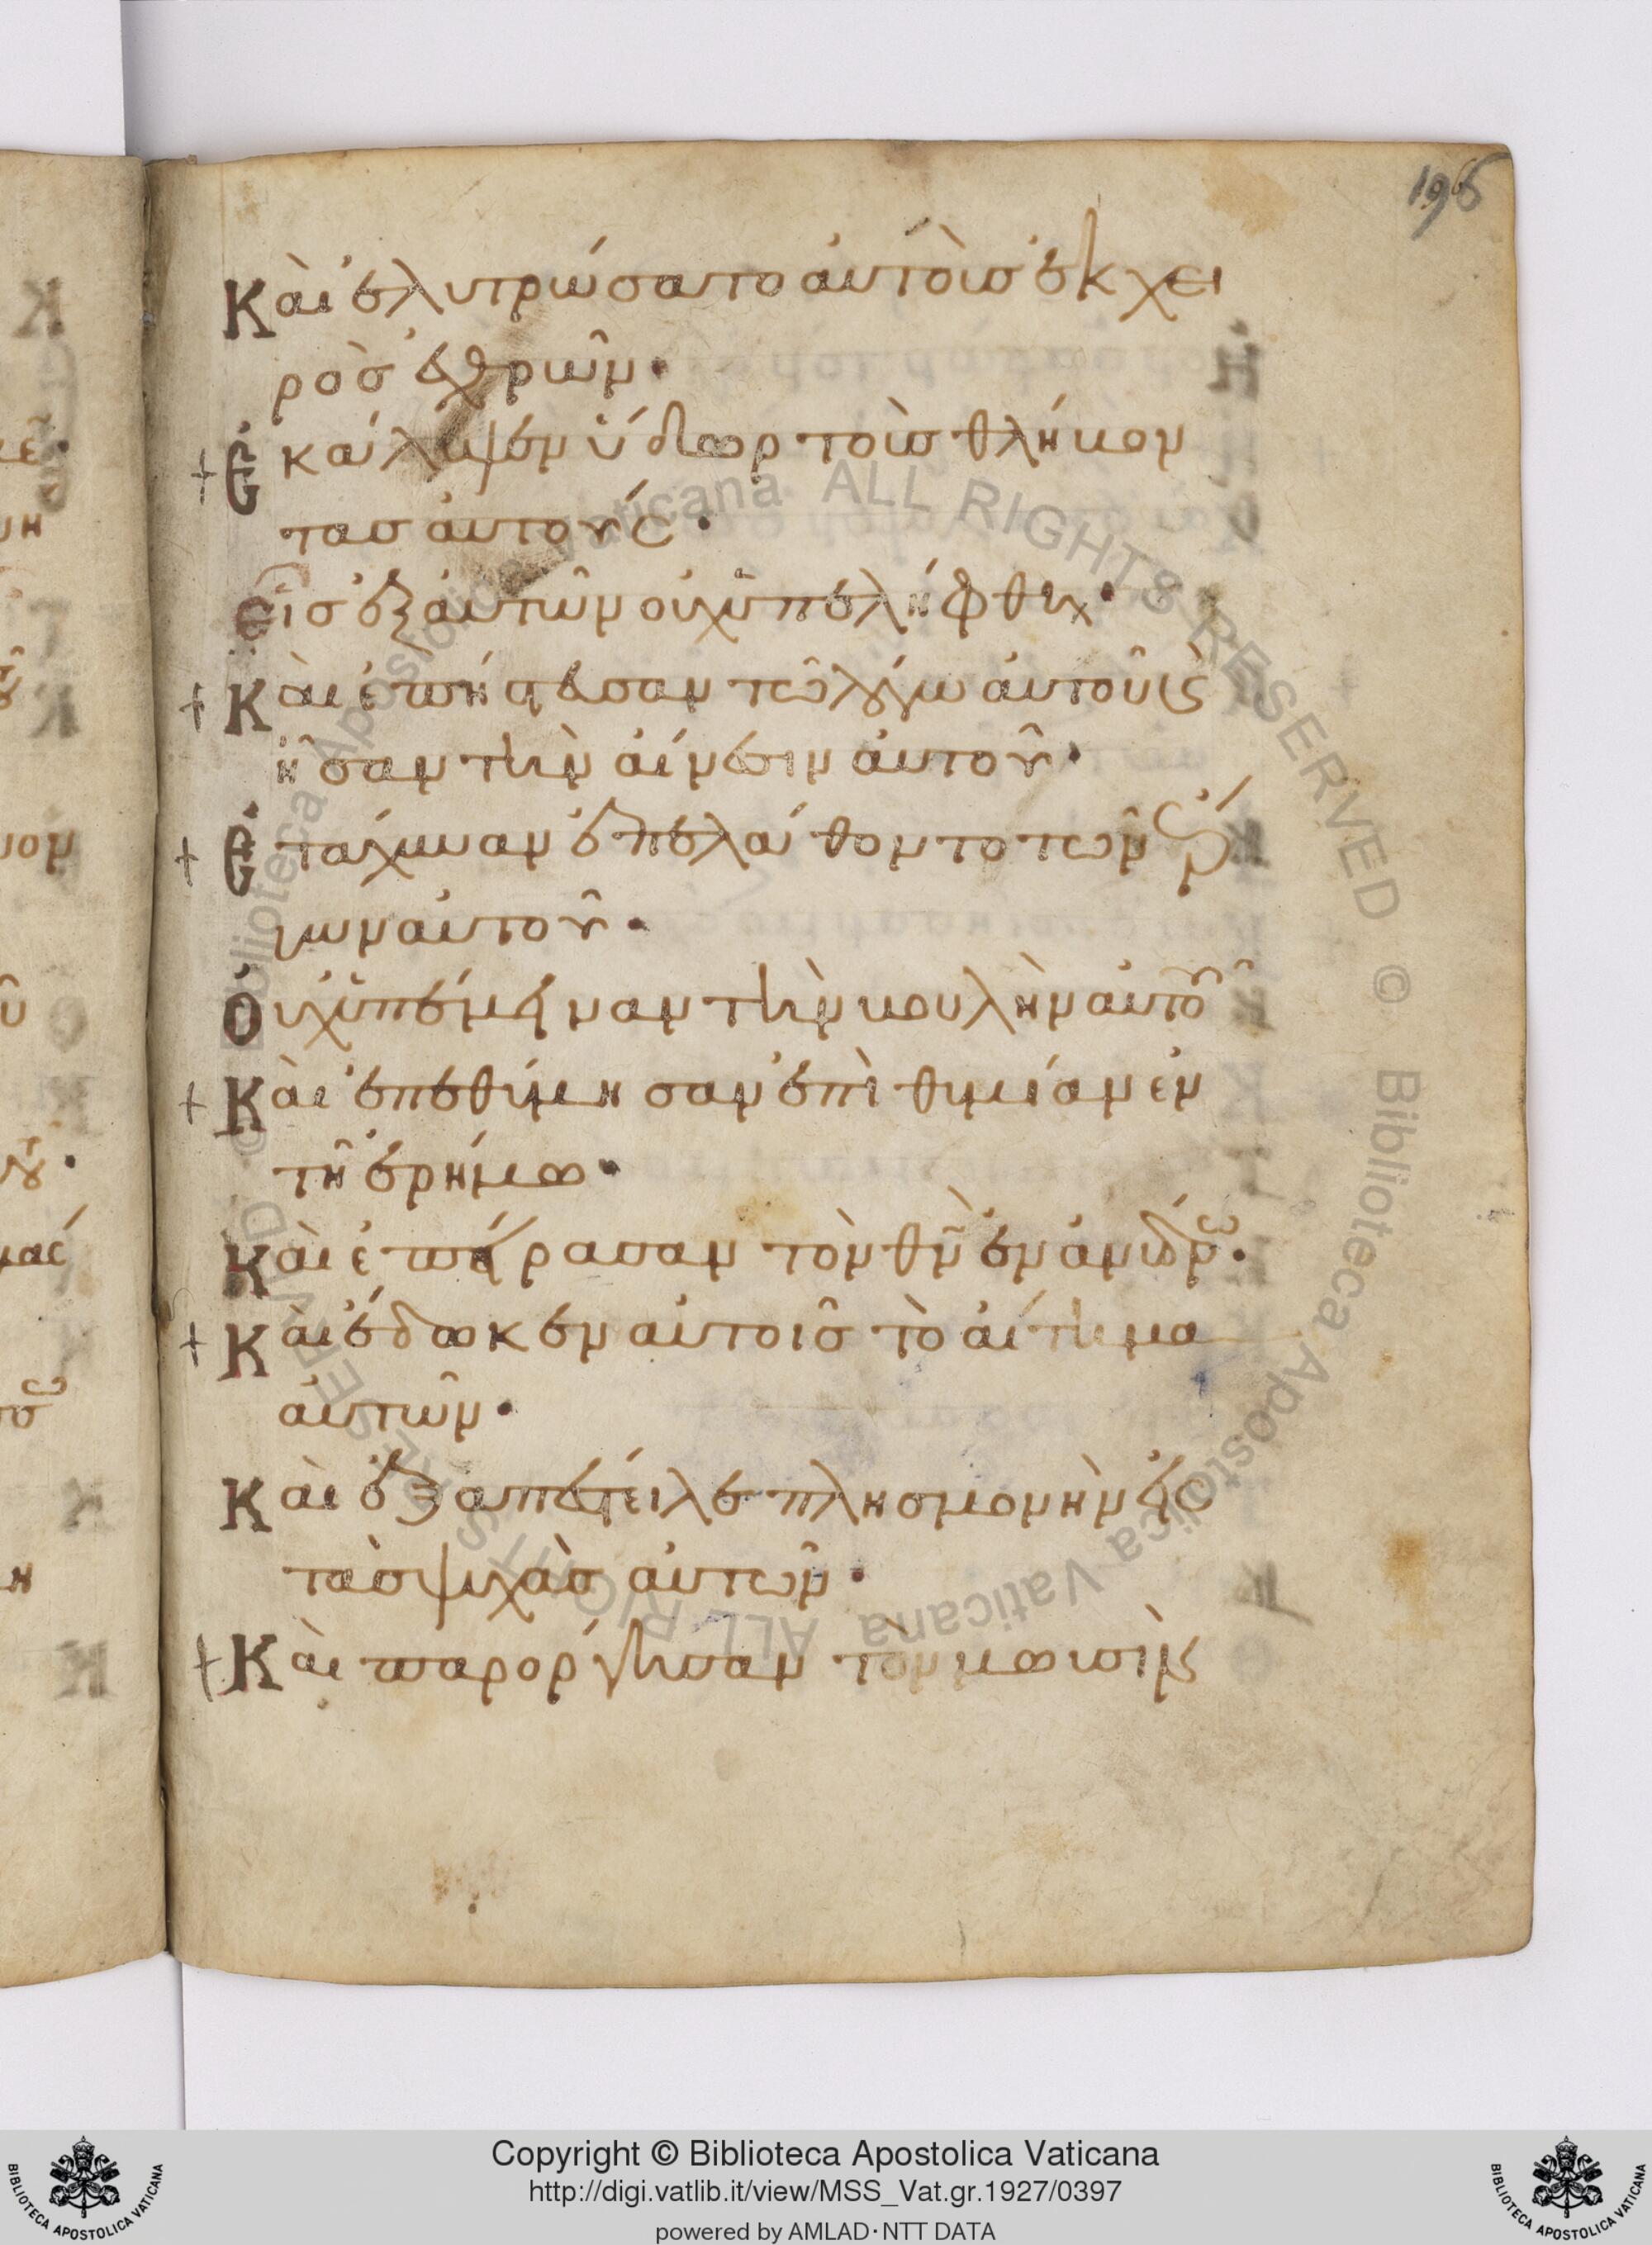 196
Κὰι ἐλυτρώσατο ἀυτοὺσ ἐκ χει
ροσ ἐχθρῶν·
Ἐκάλυψεν ὕδωρ τοὺσ θλήβον
τασ ἀυτούς·
εἷσ ἐξ ἀυτῶν οὐχ ὑπελήφθη·
Κὰι ἐπήστευσαν τῶ λόγω ἀυτοῦ κ(αι)
ἦσαν τὴν ἀίνεσιν ἀυτοῦ·
Ἐτάχυναν ἐπελάθοντο τῶν ἔρ
γων ἀυτοῦ·
Οὐχ ὑπέμειναν τὴν βουλὴν ἀυτοῦ
Κὰι ἐπεθύμησαν ἐπιθυμίαν ἐν
τῆ ἐρήμω·
Κὰι ἐπείρασαν τὸν θν ἐν ἀνύδρω·
Κὰι ἔδωκεν ἀυτοισ τὸ ἀίτημα
ἀυτῶν·
Κὰι ἐξαπέστειλε πλησμονὴν εἰς
τὰσ ψυχὰσ ἀυτῶν·
Κὰι παρόργησαν τὸν μωυσὶν
Copyright © Biblioteca Apostolica Vaticana
http://digi.vatlib.it/view/MSS_Vat.gr.1927/0397
powered by AMLAD·NTT DATA
BIBLIOTECA APOSTOLICA VATICANA
BIBLIOTECA APOSTOLICA VATICANA
© Biblioteca Apostolica Vaticana ALL RIGHTS RESERVED © Biblioteca Apostolica Vaticana ALL RIGHTS RESERVED